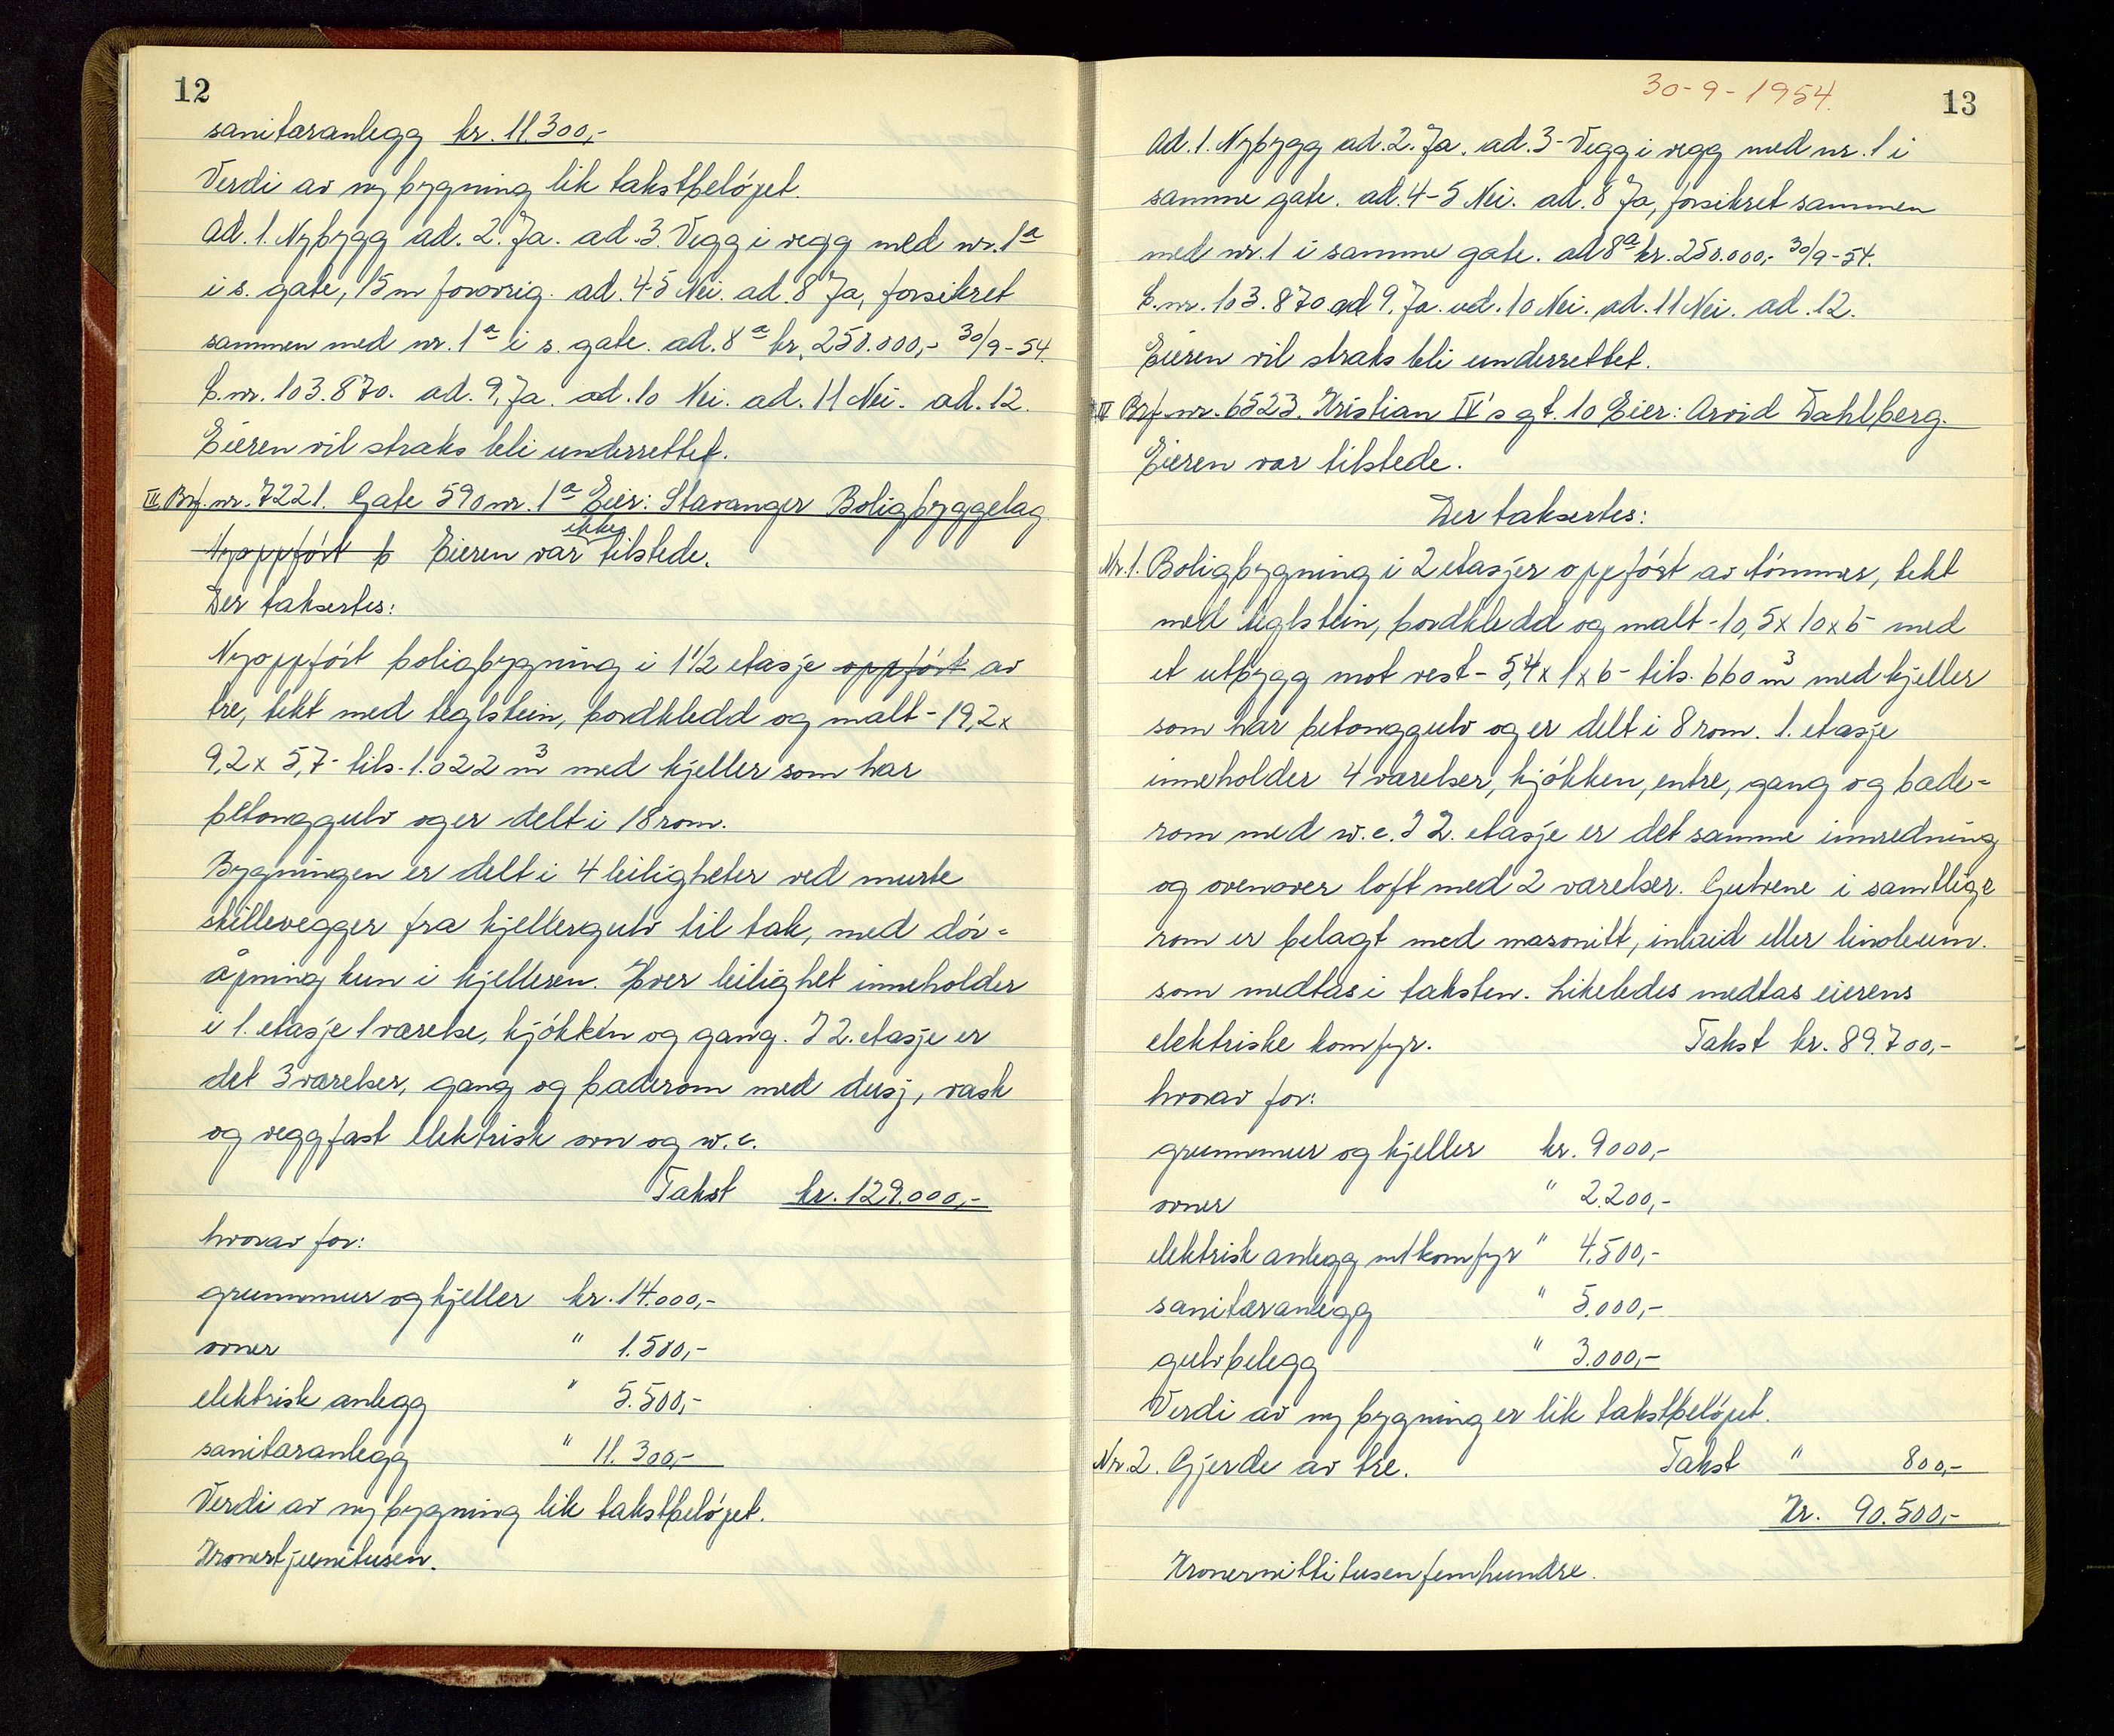 12
sanitæranlegg kr. 11.300,-
Verdi av ny bygning lik takstbeløpet.
Ad. 1. Nybygg ad. 2. Ja. ad. 3. Vegg i vegg med nr. 1a
i s. gate, 15 m forøvrig. ad. 4-5 Nei. ad. 8 Ja, forsikret
sammen med nr. 1a i s. gate. ad. 8a kr. 250.000,- 30/9-54.
L.nr. 103.870. ad. 9. Ja. ad. 10 Nei. ad. 11 Nei. ad. 12.
Eieren vil straks bli underrettet.
III Brf. nr. 7221. Gate 590 nr. 1a Eier: Stavanger Boligbyggelag
Nyoppført b Eieren var ikke tilstede.
Der taksertes:
Nyoppført boligbygning i 1 1/2 etasje oppført av
tre, tekt med teglstein, bordkledd og malt - 19,2 x
9,2 x 5,7 - tils. 1.022 m3 med kjeller som har
betonggulv og er delt i 18 rom.
Bygningen er delt i 4 leiligheter ved murte
skillevegger fra kjellergulv til tak, med dør-
åpning kun i kjelleren. Hver leilighet inneholder
i 1. etasje 1 værelse, kjøkken og gang. I 2. etasje er
det 3 værelser, gang og baderom med dusj, vask
og veggfast elektrisk ovn og w.c.
Takst kr. 129.000,-
hvorav for:
grunnmur og kjeller kr. 14.000,-
ovner " 1.500,-
elektrisk anlegg " 5.500,-
sanitæranlegg " 11.300,-
Verdi av ny bygning lik takstbeløpet.
30-9-1954.
13
Ad. 1. Nybygg ad. 2. Ja. ad. 3 - Vegg i vegg med nr. 1 i
samme gate. ad. 4-5 Nei. ad. 8 Ja, forsikret sammen
med nr. 1 i samme gate. ad 8a kr. 250.000,- 30/9-54.
L.nr. 103.870 ad 9. Ja. ad. 10 Nei. ad. 11 Nei. ad. 12.
Eieren vil straks bli underrettet.
Brf. nr. 6523. Kristian IV's gt. 10 Eier: Arvid Dahlberg.
Eieren var tilstede.
Der taksertes:
Nr. 1. Boligbygning i 2 etasjer oppført av tømmer, tekt
med teglstein, bordkledd og malt - 10,5 x 10 x 6 - med
et utbygg mot vest - 5,4 x 1 x 6 - tils. 660 m3 med kjeller
som har betonggulv og er delt i 8 rom. 1. etasje
inneholder 4 værelser, kjøkken, entre, gang og bade-
rom med w.c. I 2. etasje er det samme innredning
og ovenover loft med 2 værelser. Gulvene i samtlige
rom er belagt med masonitt, inlaid eller linoleum.
som medtas i taksten. Likeledes medtas eierens
elektriske komfyr. Takst kr. 89.700,-
hvorav for:
grunnmur og kjeller kr. 9000,-
ovner " 2.200,-
elektrisk anlegg m/komfyr " 4.500,-
sanitæranlegg " 5.000,-
gulvbelegg " 3.000,-
Verdi av ny bygning er lik takstbeløpet.
Nr. 2. Gjerde av tre. Takst " 800,-
Kr. 90.500,-
Kronernittitusenfemhundre.